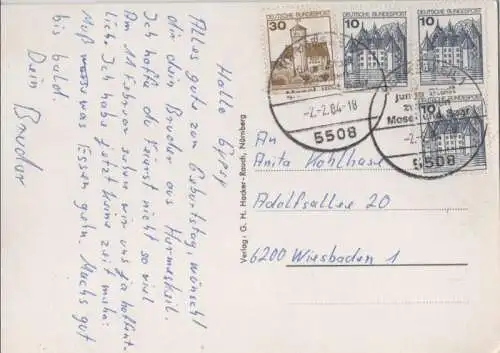 Hallo Gipsy
Alles gute zum Geburtstag, wünscht
dir dein Bruder aus Hermeskeil.
Ich hoffe du feierst nicht so viel
Am 11 Februar sehen wir uns ja hoffent-
lich. Ich habe jetzt keine zeit mehr
Muß was Essen gehn. Machs gut
bis bald.
Dein Bruder
Verlag: G. H. Hacker-Rauch, Nürnberg
30
DEUTSCHE BUNDESPOST
10
DEUTSCHE BUNDESPOST
10
DEUTSCHE BUNDESPOST
10
-2.-2.84-18
5508
Mose
-2.
5508
An
Anita Kohlhase
Adolfsallee 20
6200 Wiesbaden 1